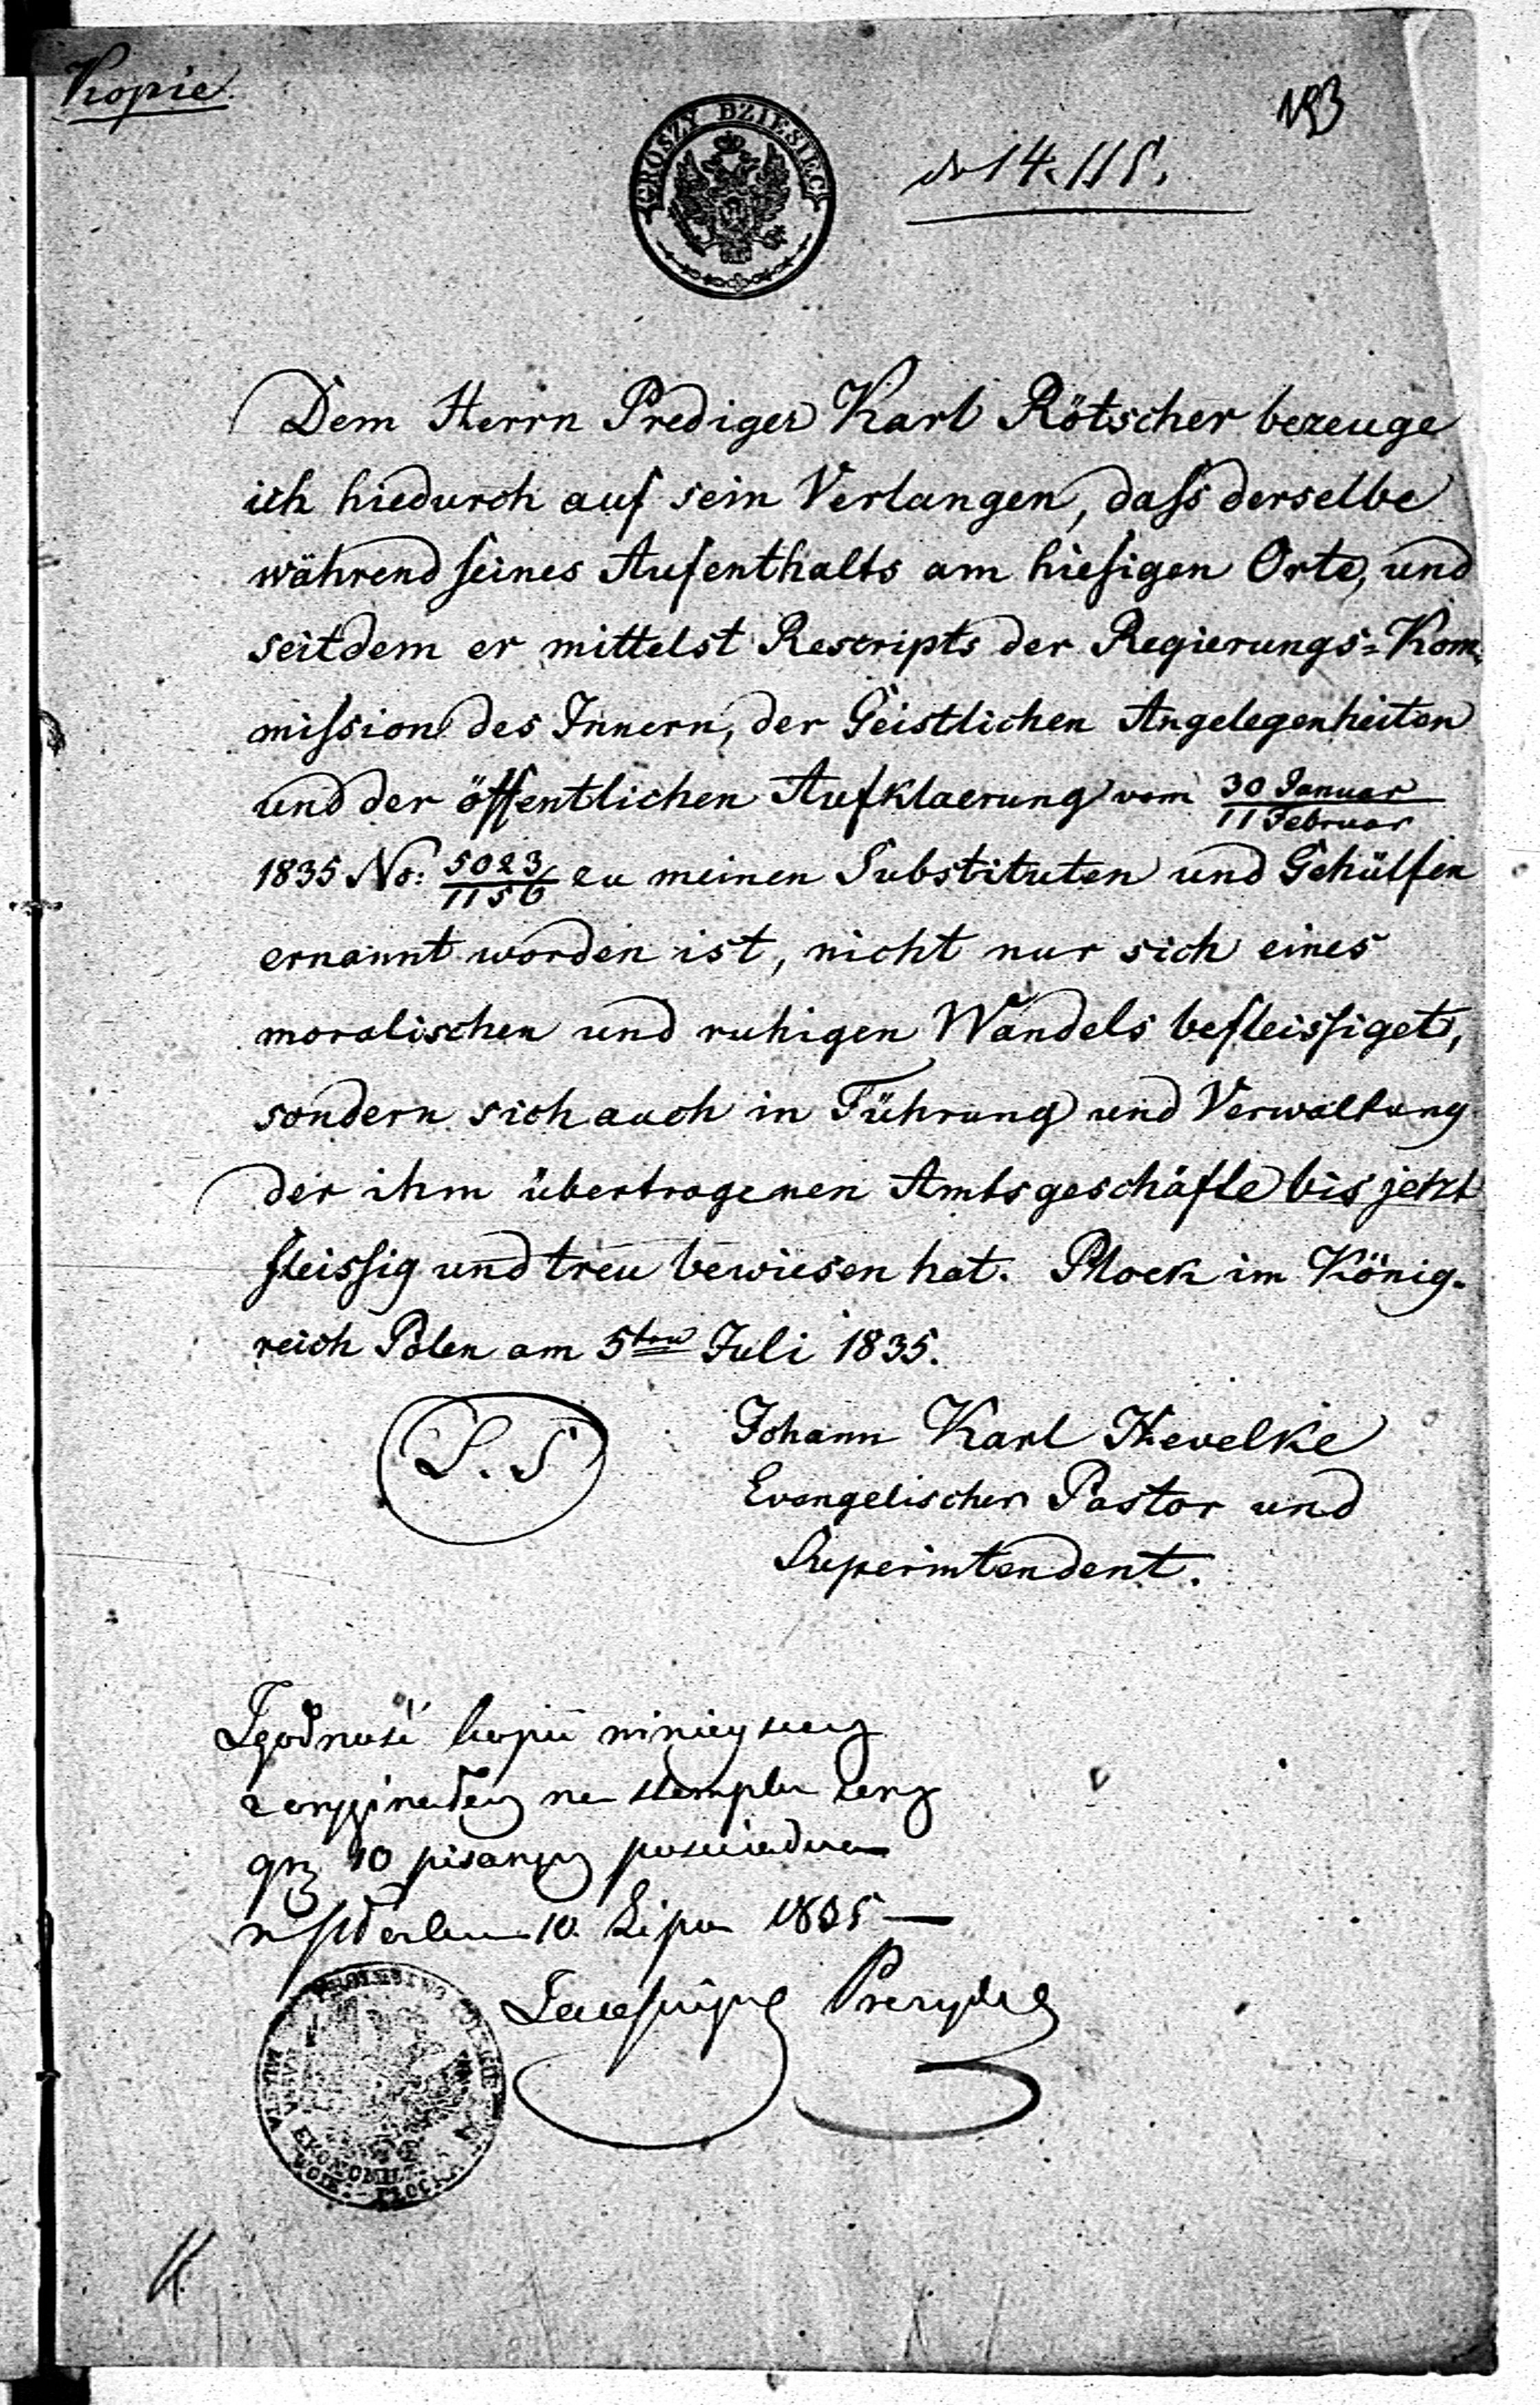 Kopie.
N 3
GROSZY DZIESIĘĆ
14.115.
Dem Herrn Prediger Karl Rötscher bezeuge
ich hiedurch auf sein Verlangen, dass derselbe
während seines Aufenthalts am hiesigen Orte, und
seitdem er mittelst Rescripts der Regierungs=Kom-
mission des Innern, der Geistlichen Angelegenheiten
und der öffentlichen Aufklaerung vom 30 Januar / 11 Februar
1835 No: 5023/1156 zu meinen Substituten und Gehülfen
ernannt worden ist, nicht nur sich eines
moralischen und ruhigen Wandels befleissiget,
sondern sich auch in Führung und Verwaltung
der ihm übertragenen Amtsgeschäfte bis jetzt
fleissig und treu bewiesen hat. Plock im König-
reich Polen am 5ten Juli 1835.
L. S
Johann Karl Hevelke
Evangelischer Pastor und
Superintendent.
Zgodność kopii ninieyszey
z oryginałem na stemplu ceny
gr 10 pisanym poświadcza
10. Lipca 1835 —
Prezydent
EKONOMII